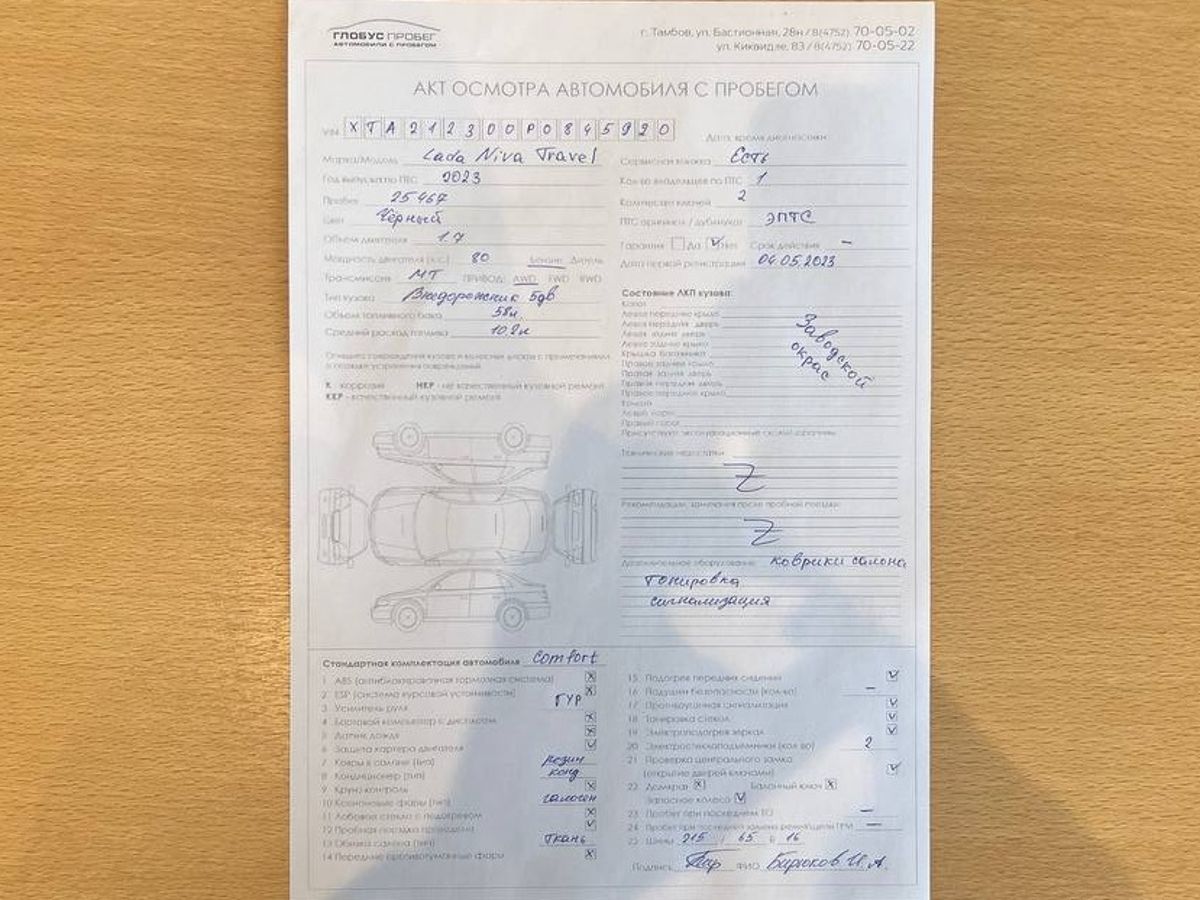 ГЛОБУС ПРОБЕГ
АВТОМОБИЛИ С ПРОБЕГОМ
г. Тамбов, ул. Бастионная, 28н / 8(4752) 70-05-02
ул. Киквидзе, 83 / 8(4752) 70-05-22
АКТ ОСМОТРА АВТОМОБИЛЯ С ПРОБЕГОМ
VIN XTA212300P0845920
Дата, время диагностики:
Марка/Модель Lada Niva Travel
Год выпуска по ПТС 2023
Пробег 25467
Цвет Чёрный
Объем двигателя 1.7
Мощность двигателя (л.с.) 80 Бензин Дизель
Трансмиссия МТ ПРИВОД: AWD FWD RWD
Тип кузова Внедорожник 5дв
Объем топливного бака 58л.
Средний расход топлива 10,2л
Сервисная книжка Есть
Кол-во владельцев по ПТС 1
Количество ключей 2
ПТС оригинал / дубликат ЭПТС
Гарантия Да Нет Срок действия –
Дата первой регистрации 04.05.2023
Опишите повреждения кузова и колесных дисков с примечаниями
о способе устранения повреждений
К - коррозия НКР - не качественный кузовной ремонт
ККР - качественный кузовной ремонт
Состояние ЛКП кузова:
Капот
Левое переднее крыло
Левая передняя дверь
Левая задняя дверь
Левое заднее крыло
Крышка багажника
Правое заднее крыло
Правая задняя дверь
Правая передняя дверь
Правое переднее крыло
Левый порог
Правый порог
Заводской
окрас
Технические недостатки
Z
Рекомендации, замечания после пробной поездки:
Z
Дополнительное оборудование коврики салона
тонировка
сигнализация
Стандартная комплектация автомобиля Comfort
1 ABS (антиблокировочная тормозная система) x
2 ESP (система курсовой устойчивости) x
3 Усилитель руля ГУР
4 Бортовой компьютер с дисплеем x
5 Датчик дождя x
6 Защита картера двигателя
7 Ковры в салоне (тип) резин
8 Кондиционер (тип) конд
9 Круиз контроль x
10 Ксеноновые фары (тип) галоген
11 Лобовое стекло с подогревом x
12 Пробная поездка проведена
13 Обивка салона (тип) ткань
14 Передние противотуманные фары x
15 Подогрев передних сидений
16 Подушки безопасности (кол-во) –
17 Противоугонная сигнализация
18 Тонировка стекол
19 Электроподогрев зеркал
20 Электростеклоподъемники (кол-во) 2
21 Проверка центрального замка
(открытие дверей ключами)
22 Домкрат x Баллонный ключ x
Запасное колесо
23 Пробег при последнем ТО –
24 Пробег при последней замене ремня/цепи ГРМ –
25 Шины 215 / 65 R 16
Подпись ФИО Бирюков И.А.